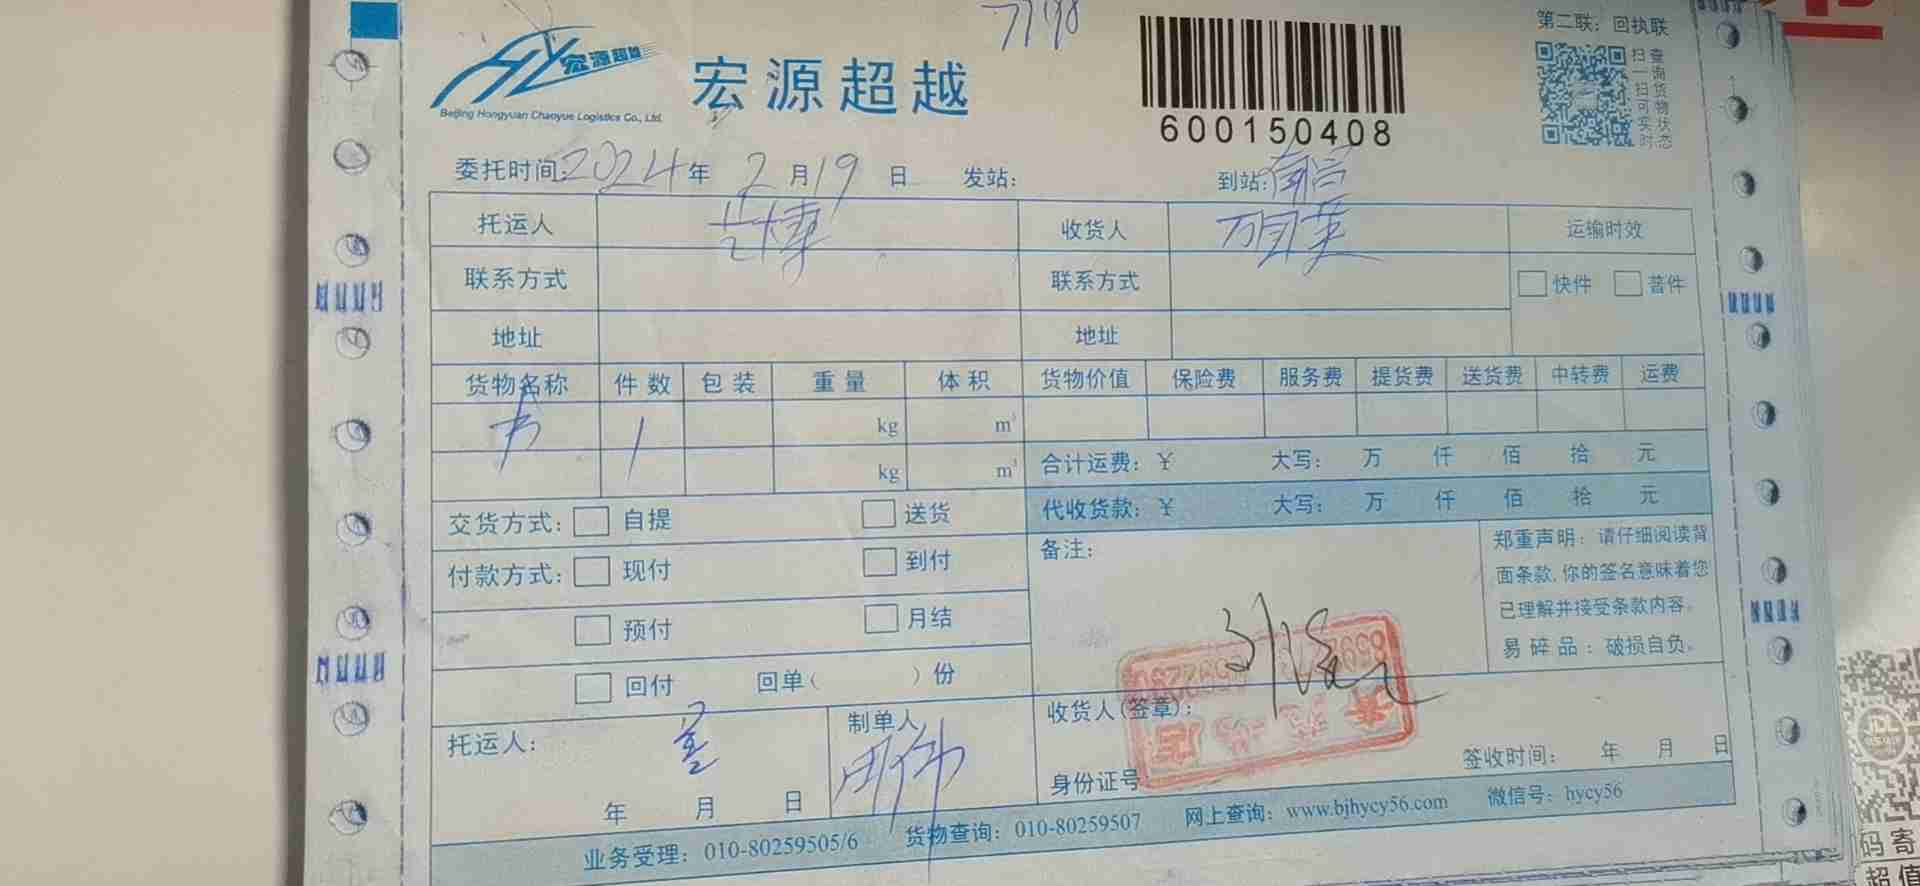 7798
第二联：回执联
宏源超雄
Beijing Hongyuan Chaoyue Logistics Co., Ltd.
宏源超越
600150408
扫一扫可实时
查询货物状态
委托时间：2024年2月19日 发站： 到站：南宫
托运人 收货人 运输时效
联系方式 联系方式 快件 普件
地址 地址
货物名称 件数 包装 重量 体积 货物价值 保险费 服务费 提货费 送货费 中转费 运费
书 1 kg m³
kg m³ 合计运费：￥ 大写： 万 仟 佰 拾 元
交货方式： 自提 送货 代收货款：￥ 大写： 万 仟 佰 拾 元
付款方式： 现付 到付 备注：
预付 月结
回付 回单（ ）份
郑重声明：请仔细阅读背
面条款，你的签名意味着您
已理解并接受条款内容。
易碎品：破损自负。
托运人： 制单人 收货人（签章）：
年 月 日 身份证号 签收时间： 年 月 日
业务受理：010-80259505/6 货物查询：010-80259507 网上查询：www.bjhycy56.com 微信号：hycy56
JDL
码寄
超值